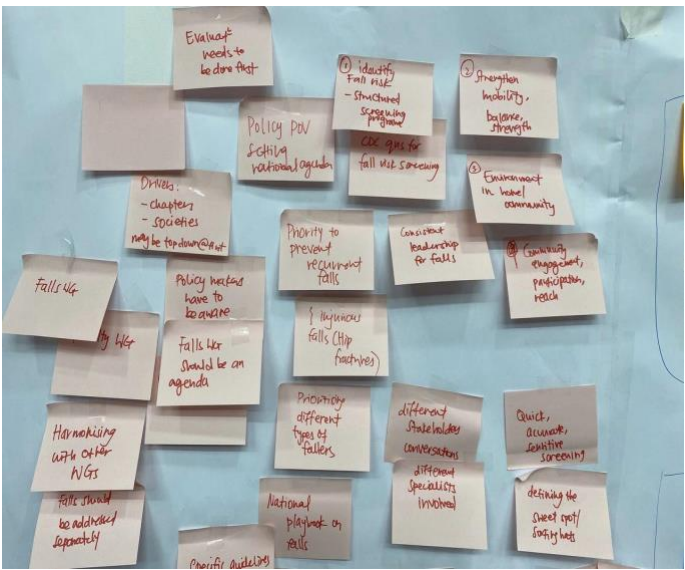 Evaluatn
needs to
be done first
① identify
Fall risk
- structured
screening
programme
② Strengthen
mobility,
balance,
strength
Policy POV
setting
national agenda
CDC qns for
fall risk screening
③ Environment
in home/
community
Drivers:
- chapters
- societies
may be top down @ first
Priority to
prevent
recurrent
falls
Consistent
leadership
for falls
Community
engagement,
participation,
reach
Falls WG
Policy makers
have to
be aware
& injurious
falls (hip
fractures)
WG
Falls
should be an
agenda
Harmonising
with other
WGs
Prioritise
different
types of
fallers
different
stakeholders
conversations
Quick,
accurate,
sensitive
screening
falls should
be addressed
separately
National
playbook on
falls
different
specialists
involved
defining the
sweet spot/
Specific guidelines